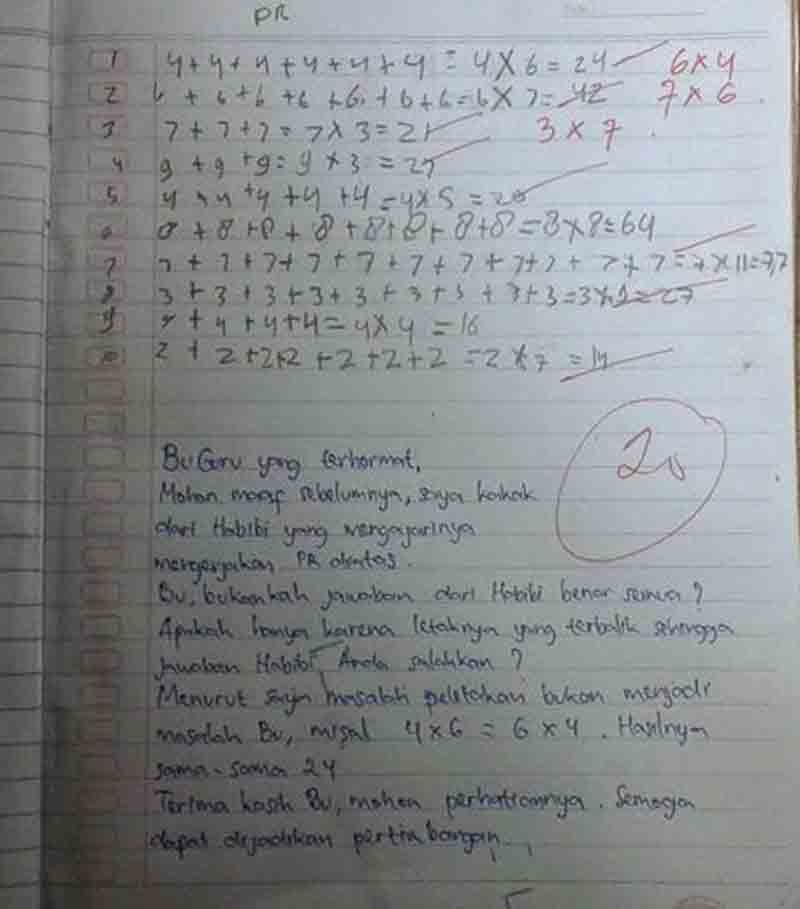 PR
1 4 + 4 + 4 + 4 + 4 + 4 = 4 X 6 = 24 6 x 4
2 6 + 6 + 6 + 6 + 6 + 6 + 6 = 6 X 7 = 42 7 x 6
3 7 + 7 + 7 = 7 x 3 = 21 3 x 7
4 9 + 9 + 9 = 9 x 3 = 27
5 4 + 4 + 4 + 4 + 4 = 4 x 5 = 20
6 8 + 8 + 8 + 8 + 8 + 8 + 8 + 8 = 8 x 8 = 64
7 7 + 7 + 7 + 7 + 7 + 7 + 7 + 7 + 7 + 7 + 7 = 7 x 11 = 77
8 3 + 3 + 3 + 3 + 3 + 3 + 3 + 3 + 3 = 3 x 9 = 27
9 4 + 4 + 4 + 4 = 4 x 4 = 16
10 2 + 2 + 2 + 2 + 2 + 2 + 2 = 2 x 7 = 14
20
Bu Guru yang terhormat,
Mohon maaf sebelumnya, saya kakak
dari Habibi yang mengajarinya
mengerjakan PR diatas.
Bu, bukankah jawaban dari Habibi benar semua?
Apakah hanya karena letaknya yang terbalik sehingga
jawaban Habibi Anda salahkan?
Menurut saya masalah peletakan bukan menjadi
masalah Bu, misal 4 x 6 = 6 x 4. Hasilnya
sama-sama 24
Terima kasih Bu, mohon perhatiannya. Semoga
dapat dijadikan pertimbangan